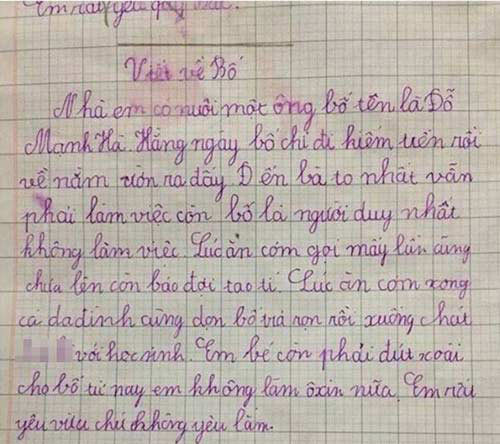 Em rất yêu quý
Viết về Bố
Nhà em có nuôi một ông bố tên là Đỗ
Mạnh Hà. Hằng ngày bố chỉ đi kiếm tiền rồi
về nằm ườn ra đấy. Đến bà to nhất vẫn
phải làm việc còn bố là người duy nhất
không làm việc. Lúc ăn cơm gọi mấy lần cũng
chưa lên còn bảo đợi tao tí. Lúc ăn cơm xong
cả da đình cùng dọn bố vừa rọn rồi xuống chat
với học sinh. Em bé còn phải đút xoài
cho bố từ nay em không làm ôxin nữa. Em rất
yêu vừa chứ không yêu lắm.